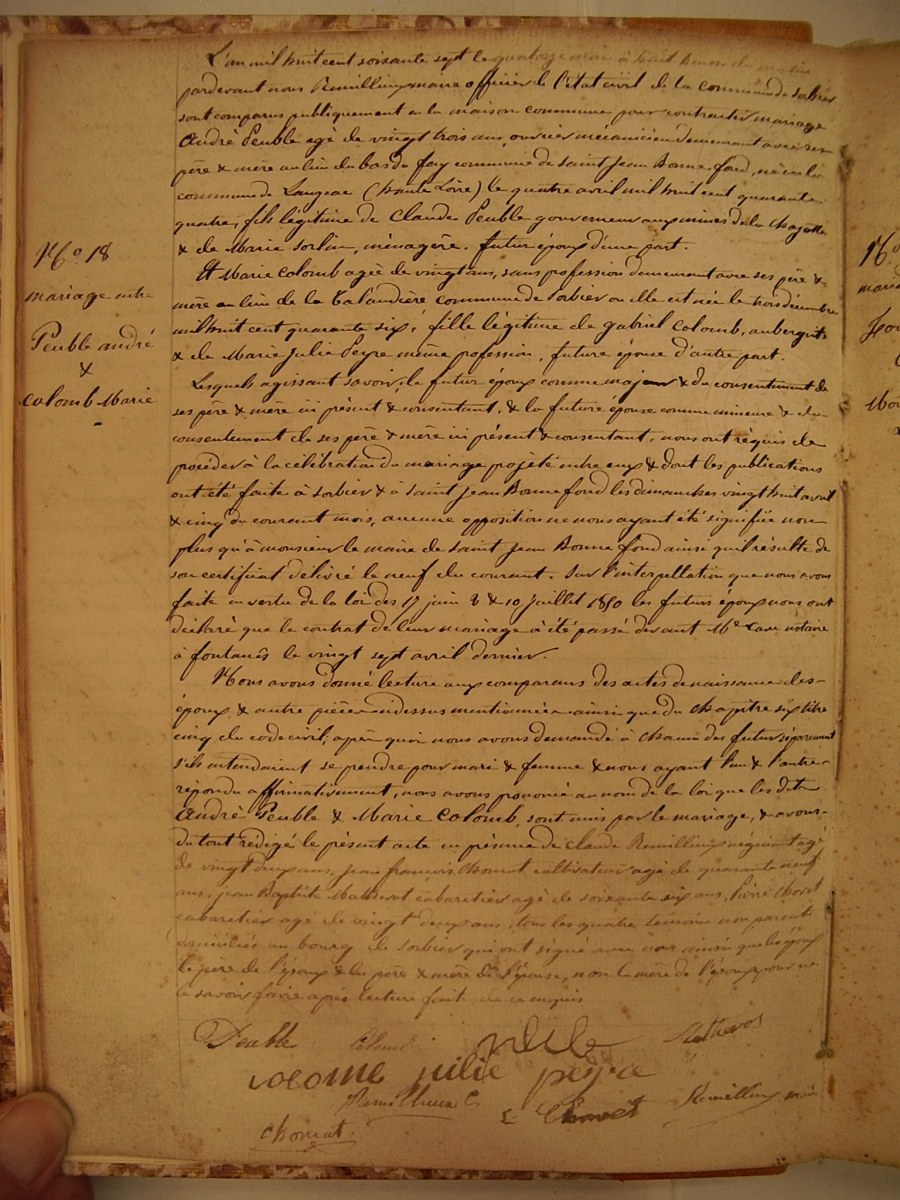 L'an mil huit cent soixante sept le quatorze mai à huit heures du matin
pardevant nous Remillieux maire officier de l'état civil de la commune de Sorbier
sont comparus publiquement en la maison commune pour contracter mariage
André Peuble agé de vingt trois ans, ouvrier mécanicien demeurant avec ses
père & mère au lieu du bas du fay commune de Saint Jean Bonnefond, né en la
commune de Langeac (haute Loire) le quatre avril mil huit cent quarante
quatre, fils légitime de Claude Peuble gouverneur aux mines de la Chazotte
& de Marie Sorlin, ménagère. futur époux d'une part.
Et Marie Colomb agée de vingt ans, sans profession demeurant avec ses père &
mère au lieu de la Talaudière commune de Sorbier ou elle est née le trois décembre
mil huit cent quarante six, fille légitime de Gabriel Colomb, aubergiste
& de Marie Julie Peyre même profession, future épouse d'autre part.
Lesquels agissant savoir, le futur époux comme majeur & du consentiment de
ses père & mère ici présent & consentant, & la future épouse comme mineure & du
consentement de ses père & mère ici présent & consentant, nous ont réquis de
procéder à la célébration du mariage projeté entre eux & dont les publications
ont été faite à Sorbier & à Saint Jean Bonnefond les dimanches vingt huit avril
& cinq du courant mois, aucune opposition ne nous ayant été signifiée non
plus qu'à monsieur le maire de Saint Jean Bonnefond ainsi qu'il résulte de
son certificat délivré le neuf du courant. Sur l'interpellation que nous avons
faite en vertu de la loi des 17 juin & 10 juillet 1850 les futurs époux nous ont
déclaré que le contrat de leur mariage à été passé devant Me notaire
à fontanès le vingt sept avril dernier.
Nous avons donné lecture aux comparans des actes de naissance des
époux, & autre pièce cidessus mentionnée ainsi que du chapitre six titre
cinq du code civil; après quoi nous avons demandé à chacun des futur séparement
s'ils entendaient se prendre pour mari & femme & nous ayant l'un & l'autre
répondu affirmativement, nous avons prononcé au nom de la loi que les dits
André Peuble & Marie Colomb, sont unis par le mariage, & avons
du tout redigé le présent acte en présence de Claude Remillieux négociant agé
de vingt deux ans, Jean françois Chomat cultivateur agé de quarante neuf
ans, Jean Baptiste cabaretier agé de soixante six ans, Pierre Chovet
cabaretier agé de vingt deux ans, tous les quatre témoins non parents
domiciliés au bourg de Sorbier qui ont signé avec nous ainsi que les époux
le père de l'époux & les père & mère de l'épouse, non la mère de l'époux pour ne
le savoir faire après lecture faite de ce enquis
No 18
mariage entre
Peuble andré
&
Colomb Marie
Peuble Colomb
Colomb julie peyre
Remillieux C. Chovet Remillieux maire
Chomat